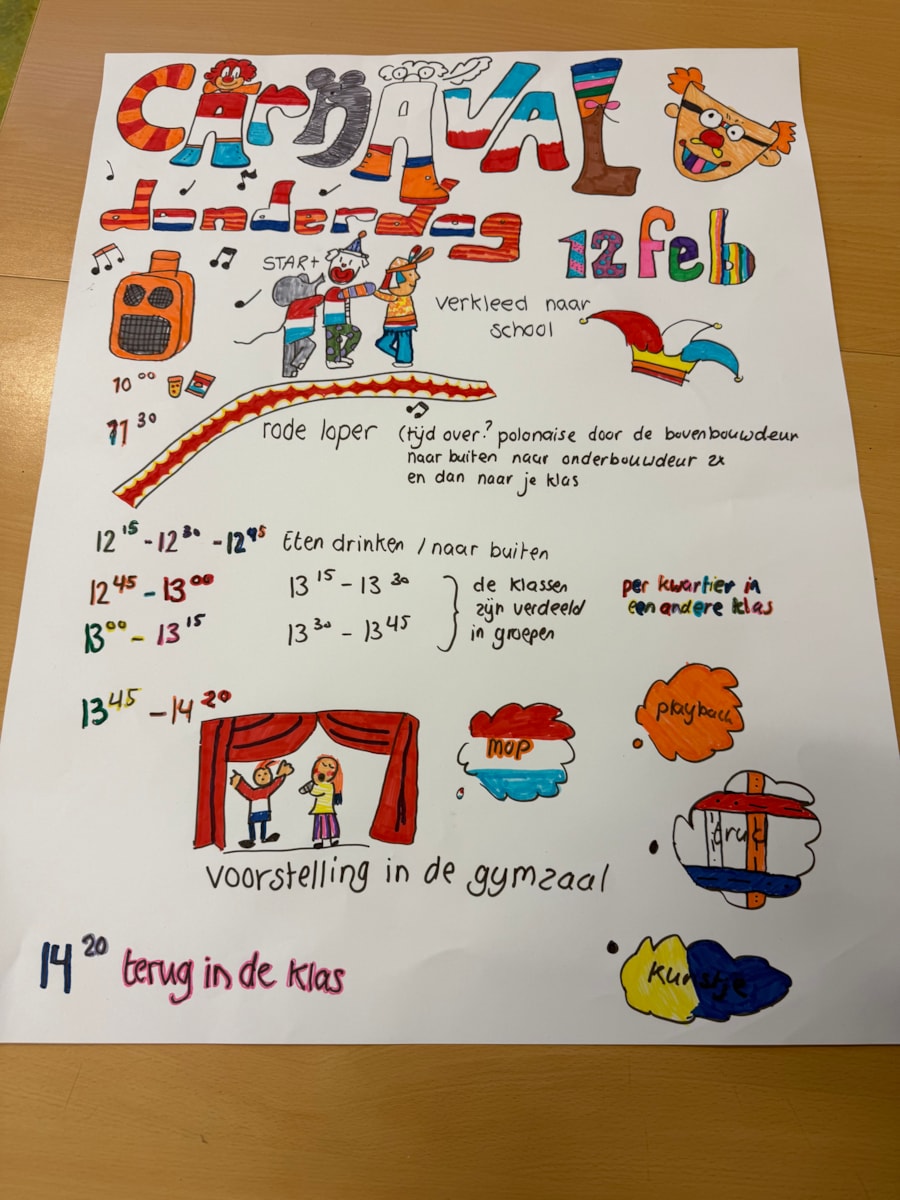 CArnAVAL
donderdag
12 feb
START
verkleed naar
school
10 00
11 30
rode loper (tijd over? polonaise door de bovenbouwdeur
naar buiten naar onderbouwdeur 2x
en dan naar je klas
12 15 - 12 30 - 12 45 Eten drinken / naar buiten
12 45 - 13 00
13 00 - 13 15
13 15 - 13 30
13 30 - 13 45
de klassen
zijn verdeeld
in groepen
per kwartier in
een andere klas
13 45 - 14 20
mop
playback
druk
kunstje
voorstelling in de gymzaal
14 20 terug in de klas